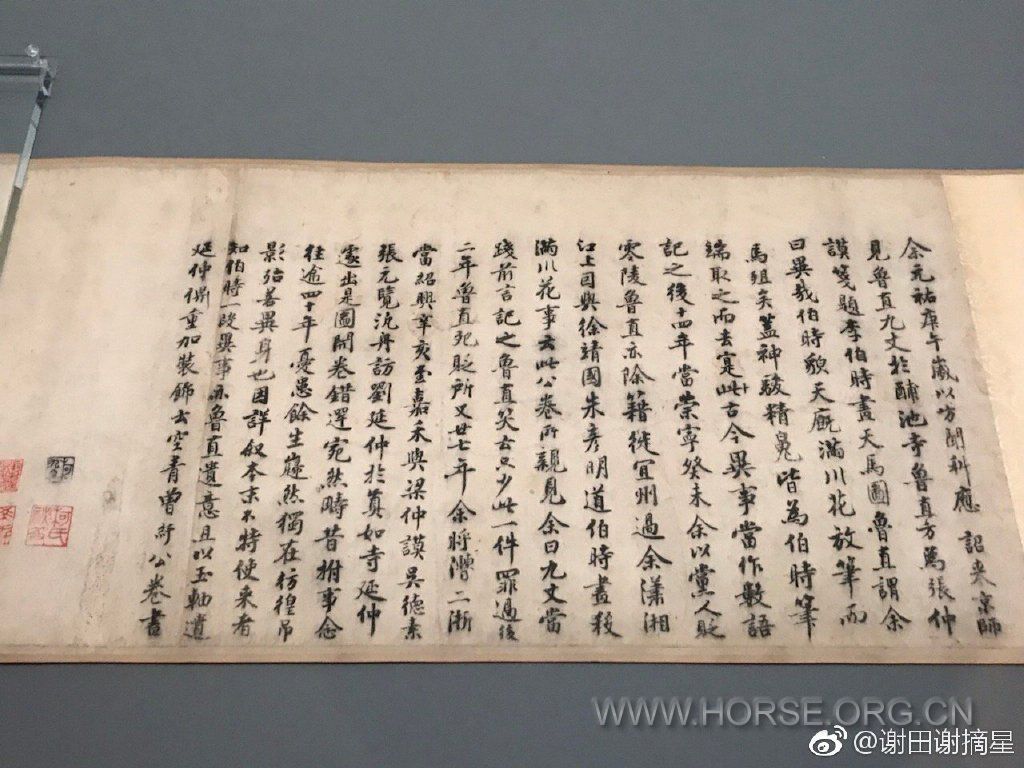 余元祐庚午歲以方聞科應　詔来京師
見魯直九丈於酺池寺魯直方為張仲
謨箋題李伯時畫天馬圖魯直謂余
曰異哉伯時貌天厩滿川花放筆而
馬殂矣蓋神駿精魄皆為伯時筆
端取之而去寔此古今異事當作數語
記之後十四年當崇寧癸未余以黨人貶
零陵魯直亦除籍徙宜州過余瀟湘
江上因與徐靖國朱彥明道伯時畫殺
滿川花事云此公卷所親見余曰九丈當
踐前言記之魯直笑云只少此一件罪過後
二年魯直死貶所又廿七年余將漕二浙
當紹興辛亥至嘉禾與梁仲謨吳德素
張元覽汎舟訪劉延仲於真如寺延仲
遽出是圖開卷錯愕宛然時昔拊事念
往逾四十年憂患餘生巋然獨在彷徨弔
影殆若異身也因詳叙本末不特使来者
知伯時一段異事亦魯直遺意且以玉軸遺
延仲俾重加裝飾云空青曾紆公卷書
WWW.HORSE.ORG.CN
@谢田谢摘星